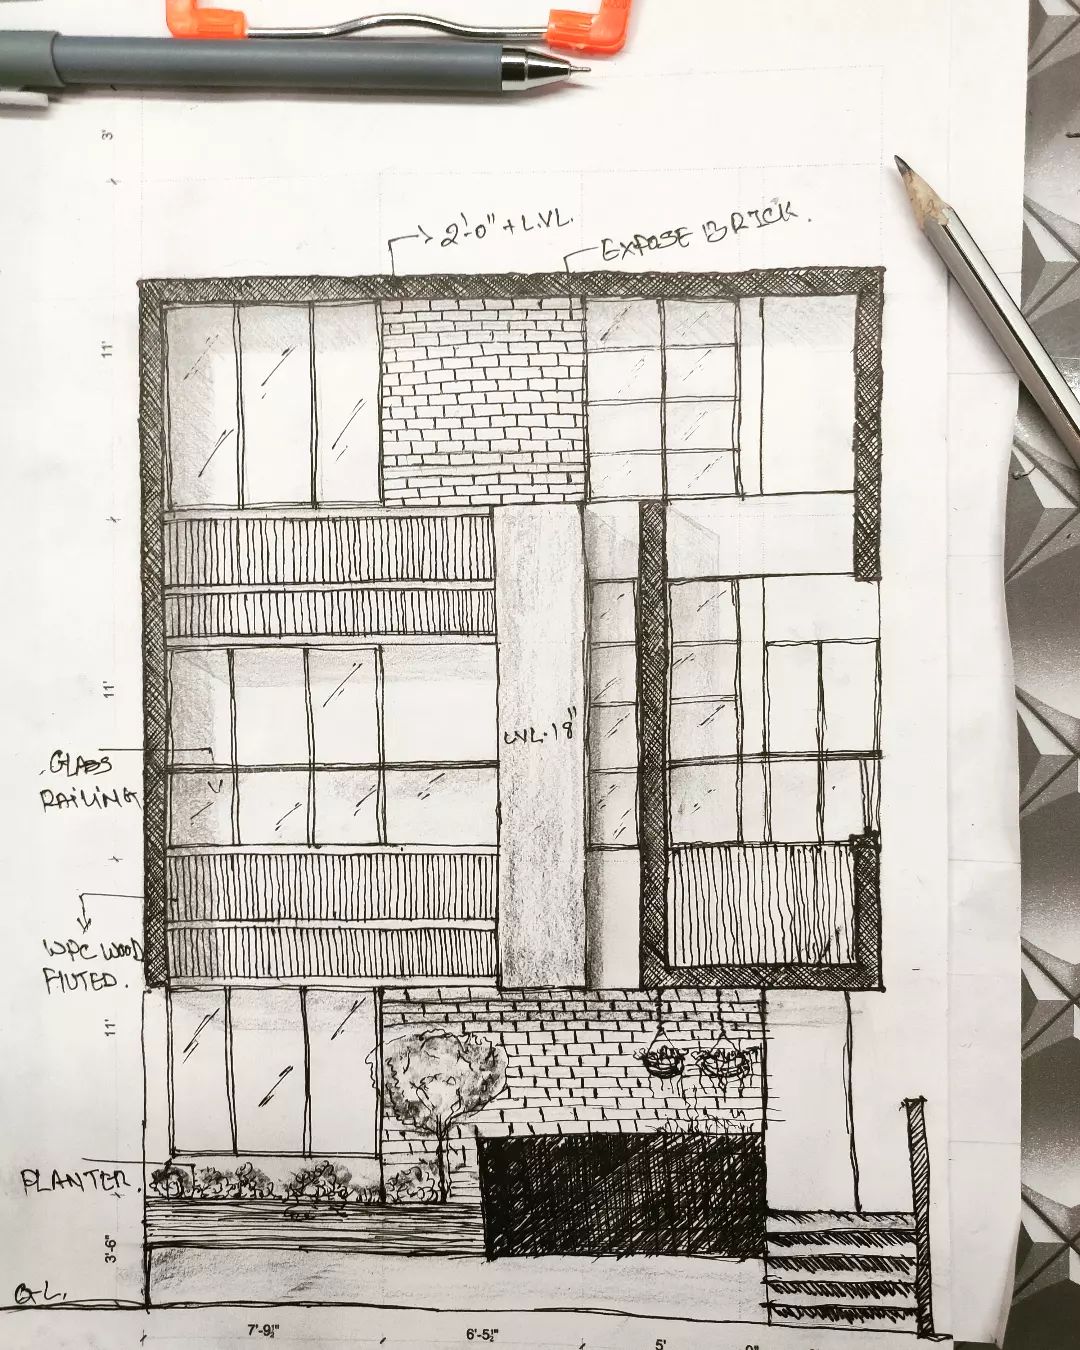 3'
2'-0" + LVL.
EXPOSE BRICK.
11'
11'
LVL-18"
GLASS
RAILING
WPC WOOD
FLUTED.
11'
PLANTER.
3'-6"
G-L.
7'-9½" 6'-5½" 5'